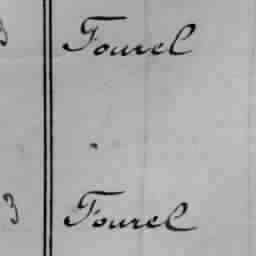 Fourel
3 Fourel